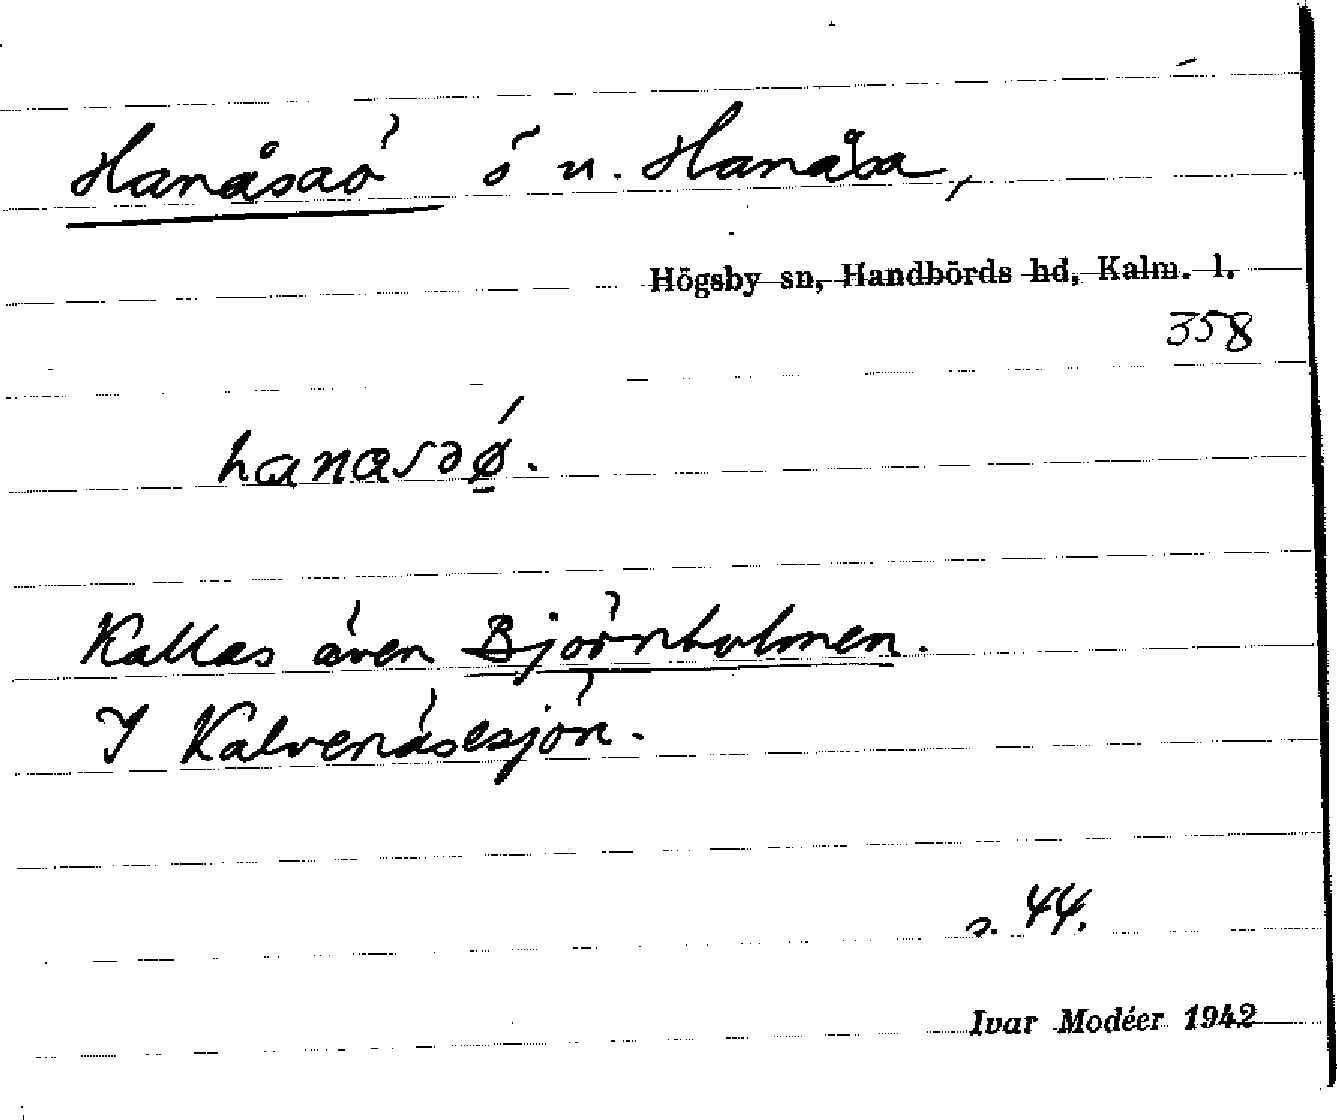 Hanåsaö ö u. Hanåsa,
Högsby sn, Handbörds hd, Kalm. l.
358
hanasǝǿ̱.
Kallas även Björnholmen.
I Kalvenässjön.
s. 44.
Ivar Modéer 1942